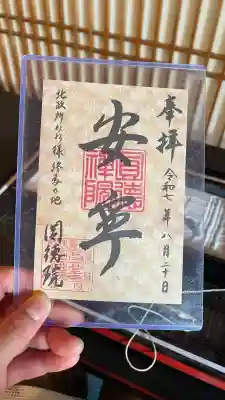 奉拝
令和七年八月二十日
安寧
圓徳禅院
北政所ねね様終焉の地
圓徳院